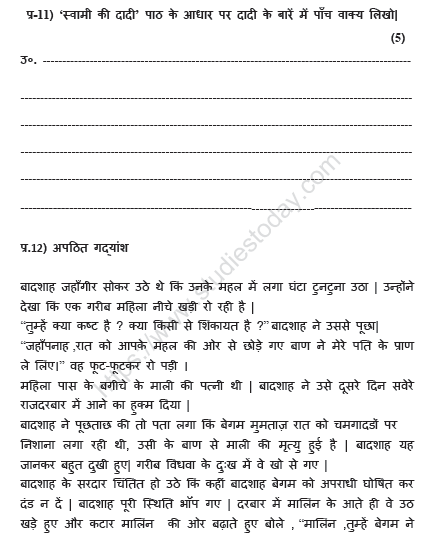 प्र-11) ‘स्वामी की दादी’ पाठ के आधार पर दादी के बारें में पाँच वाक्य लिखो|
(5)
उ०. ------------------------------------------------------------------------------------------
प्र.12) अपठित गद्यांश
बादशाह जहाँगीर सोकर उठे थे कि उनके महल में लगा घंटा टुनटुना उठा | उन्होंने
देखा कि एक गरीब महिला नीचे खड़ी रो रही है |
“तुम्हें क्या कष्ट है ? क्या किसी से शिकायत है ?” बादशाह ने उससे पूछा|
“जहाँपनाह ,रात को आपके महल की ओर से छोड़े गए बाण ने मेरे पति के प्राण
ले लिए।” वह फूट-फूटकर रो पड़ी ।
महिला पास के बगीचे के माली की पत्नी थी | बादशाह ने उसे दूसरे दिन सवेरे
राजदरबार में आने का हुक्म दिया |
बादशाह ने पूछताछ की तो पता लगा कि बेगम मुमताज़ रात को चमगादडों पर
निशाना लगा रही थी, उसी के बाण से माली की मृत्यु हुई है | बादशाह यह
जानकर बहुत दुखी हुए| गरीब विधवा के दुःख में वे खो से गए |
बादशाह के सरदार चिंतित हो उठे कि कहीं बादशाह बेगम को अपराधी घोषित कर
दंड न दें | बादशाह पूरी स्थिति भाँप गए | दरबार में मालिन के आते ही वे उठ
खड़े हुए और कटार मालिन की ओर बढ़ाते हुए बोले , “मालिन ,तुम्हें बेगम ने
https://www.studiestoday.com